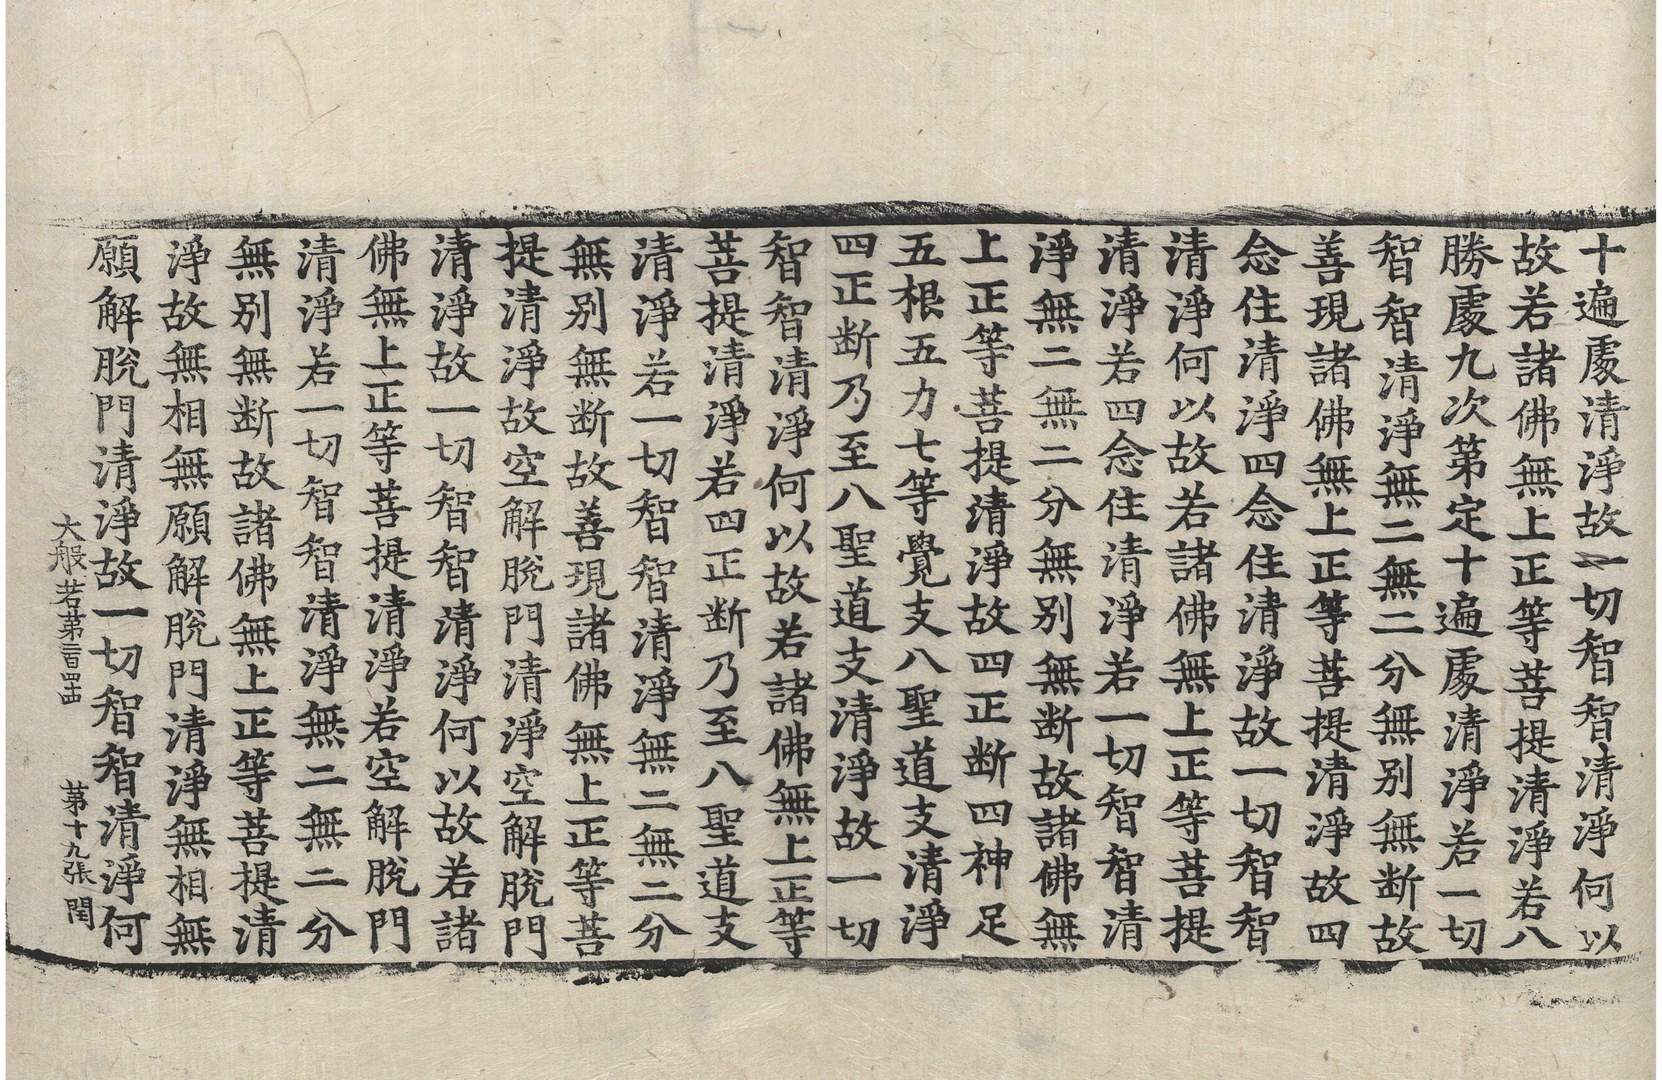 十遍處清淨故一切智智清淨何以
故若諸佛無上正等菩提清淨若八
勝處九次第定十遍處清淨若一切
智智清淨無二無二分無别無断故
善現諸佛無上正等菩提清淨故四
念住清淨四念住清淨故一切智智
清淨何以故若諸佛無上正等菩提
清淨若四念住清淨若一切智智清
淨無二無二分無别無断故諸佛無
上正等菩提清淨故四正断四神足
五根五力七等覺支八聖道支清淨
四正断乃至八聖道支清淨故一切
智智清淨何以故若諸佛無上正等
菩提清淨若四正断乃至八聖道支
清淨若一切智智清淨無二無二分
無别無断故善現諸佛無上正等菩
提清淨故空解脫門清淨空解脫門
清淨故一切智智清淨何以故若諸
佛無上正等菩提清淨若空解脫門
清淨若一切智智清淨無二無二分
無别無断故諸佛無上正等菩提清
淨故無相無願解脫門清淨無相無
願解脫門清淨故一切智智清淨何
大般若第二百四十四 第十九張 閏